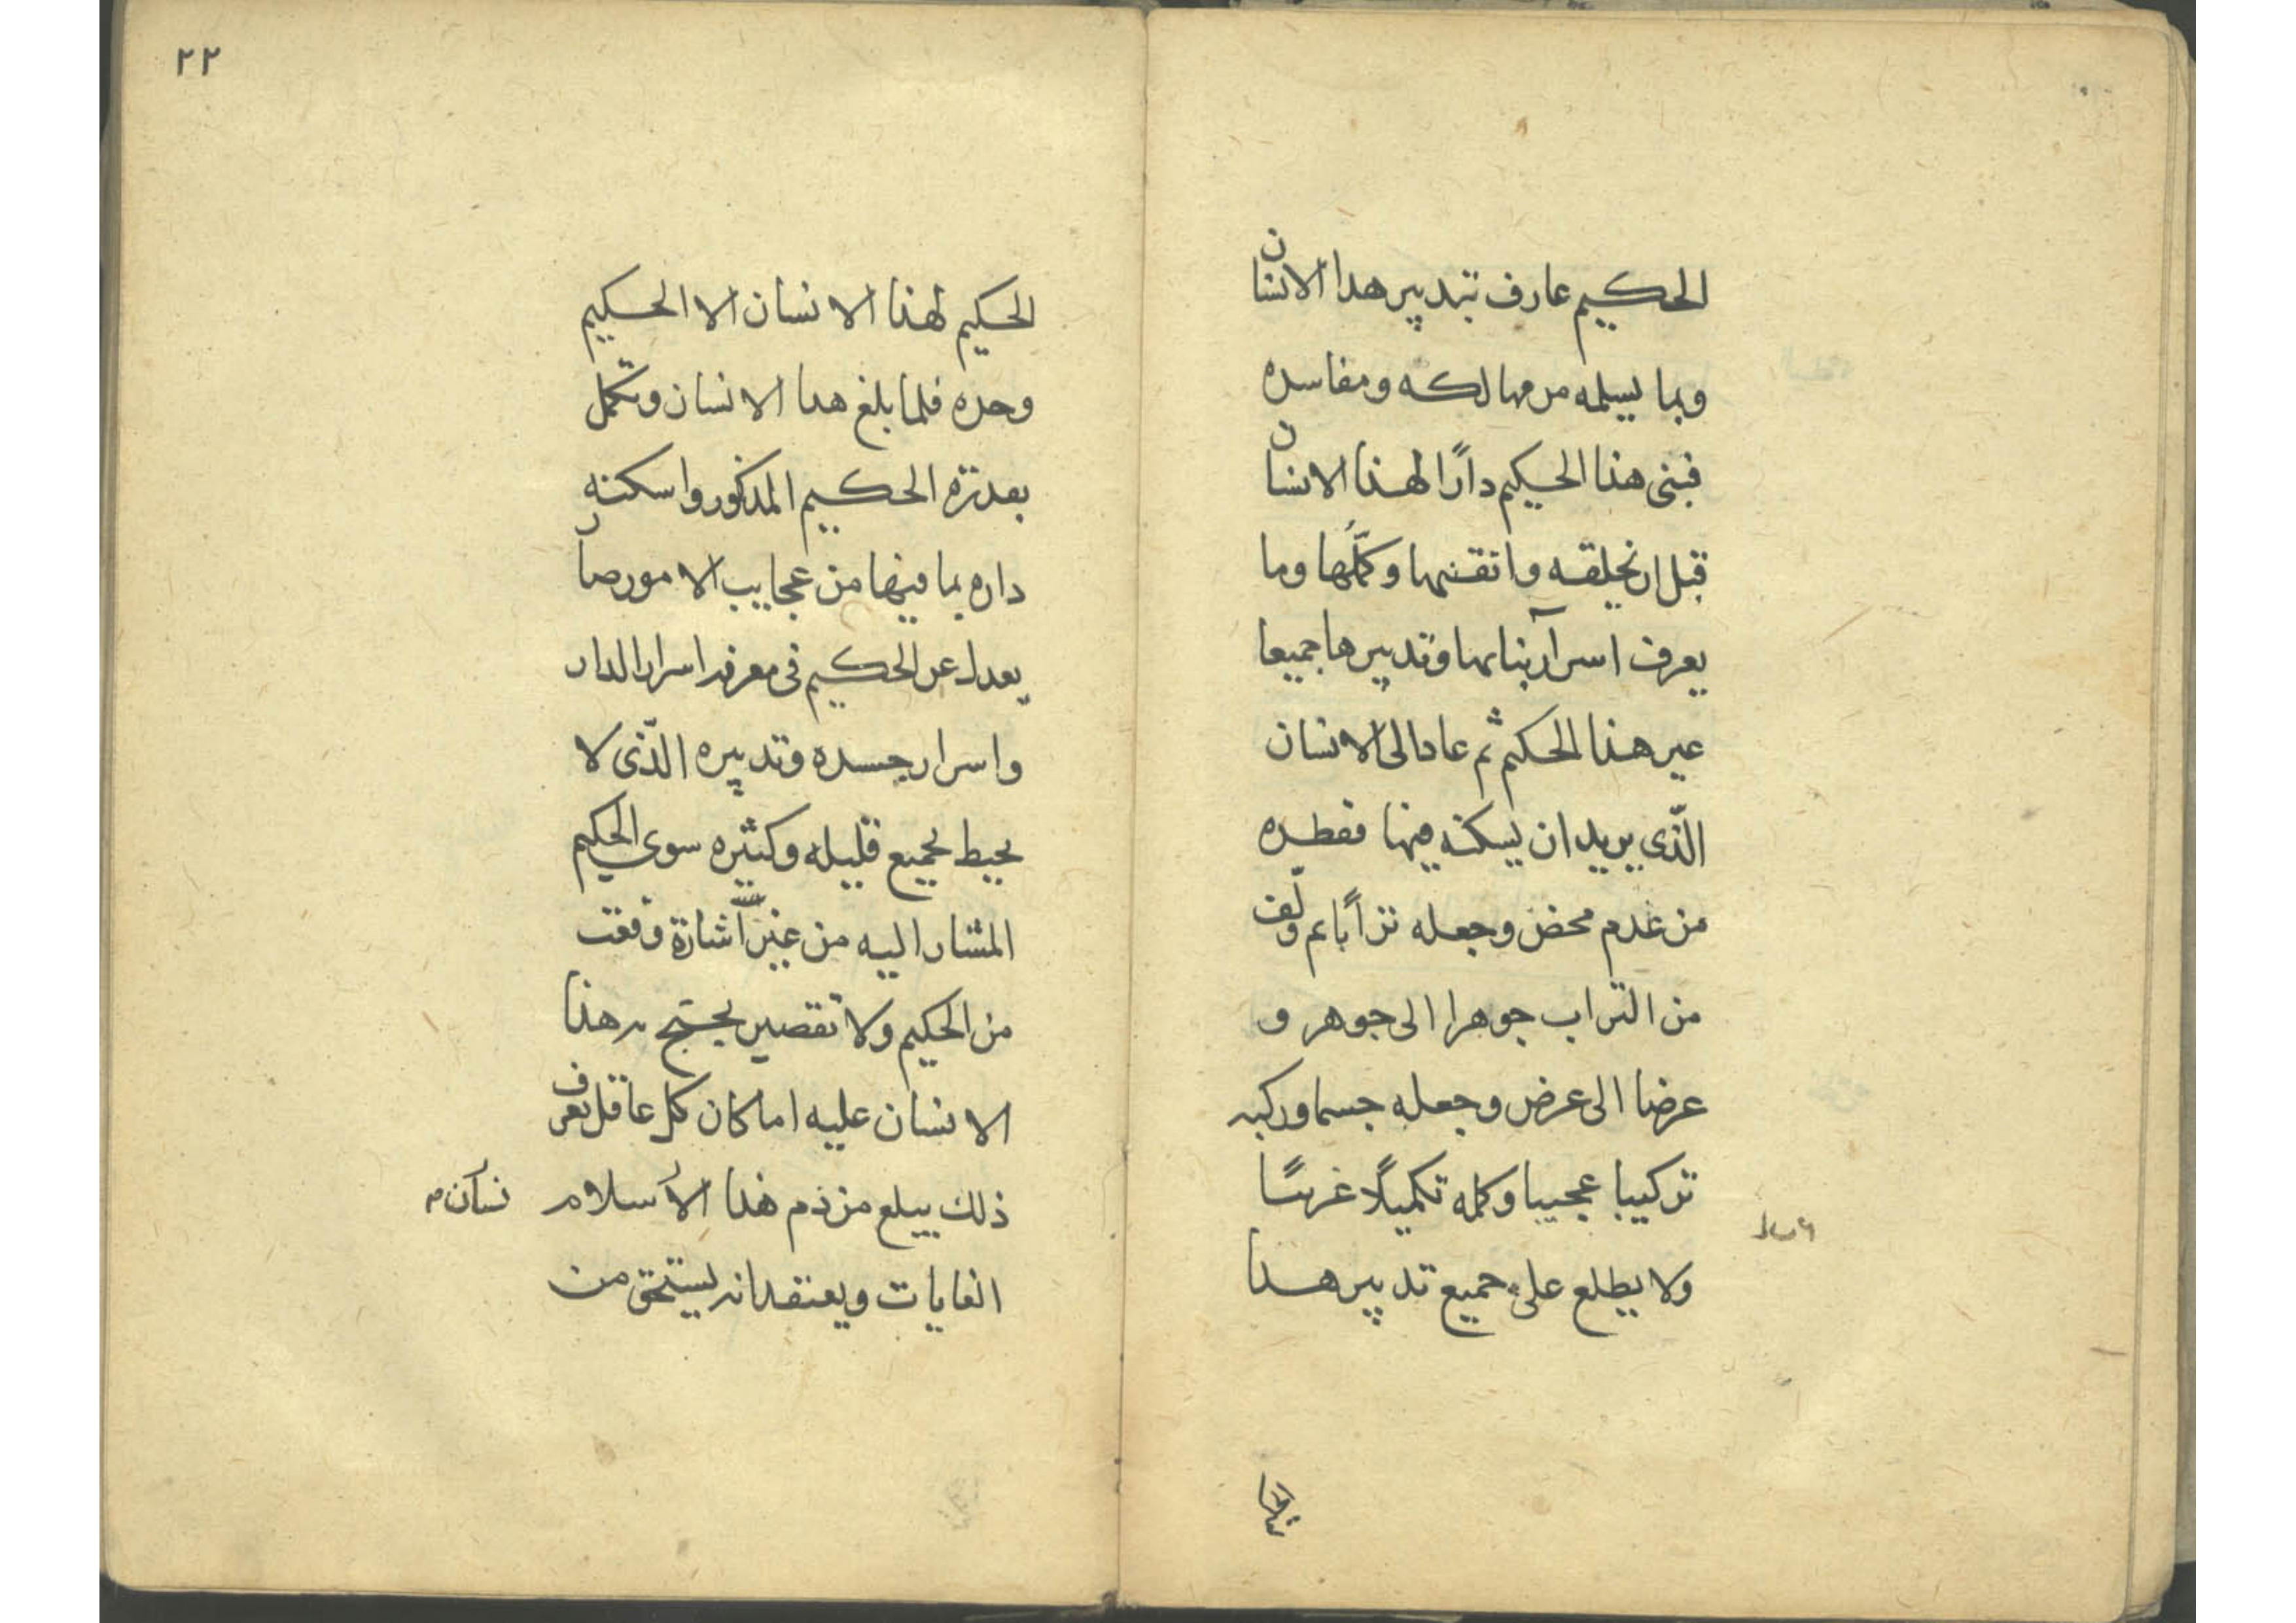 الحكيم عارف بتدبير هذا الانسان
وبما يسلمه من مهالكه ومفاسده
فبنى هذا الحكيم دارًا لهذا الانسان
قبل ان يخلقه واتقنها وكمّلها وما
يعرف اسرار بنائها وتدبيرها جميعا
غير هذا الحكيم ثم عاد الى الانسان
الّذي يريد ان يسكنه فيها ففطره
من عدم محض وجعله ترابًا ثم ولّف
من التراب جوهرا الى جوهر و
عرضا الى عرض وجعله جسما وركبه
تركيبا عجيبا وكمله تكميلًا غريبًا
ولا يطلع على جميع تدبير هذا
٢٢
الحكيم لهذا الانسان الا الحكيم
وحده فلما بلغ هذا الانسان وتكمّل
بقدرة الحكيم المذكور واسكنه
داره بما فيها من عجايب الامور صار
يعدل عن الحكيم في معرفة اسرار الدار
واسرار جسده وتدبيره الّذي لا
يحيط بجميع قليله وكثيره سوى الحكيم
المشار اليه من غير اشارة وقعت
من الحكيم ولا تقصير يحتج به هذا
الانسان عليه اما كان كل عاقل يعرف
ذلك يبلغ من ذم هذا الاسلام
نسان م
الغايات ويعتقد انه يستحق من